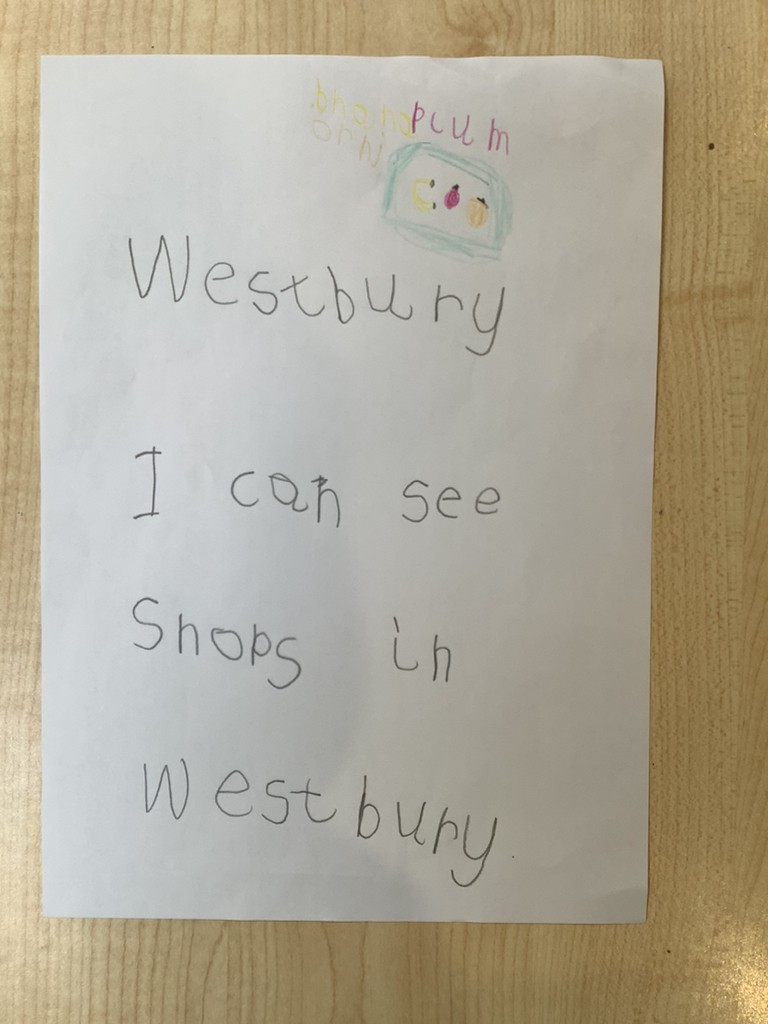 bnana plum
Westbury
I can see
Shops in
Westbury.